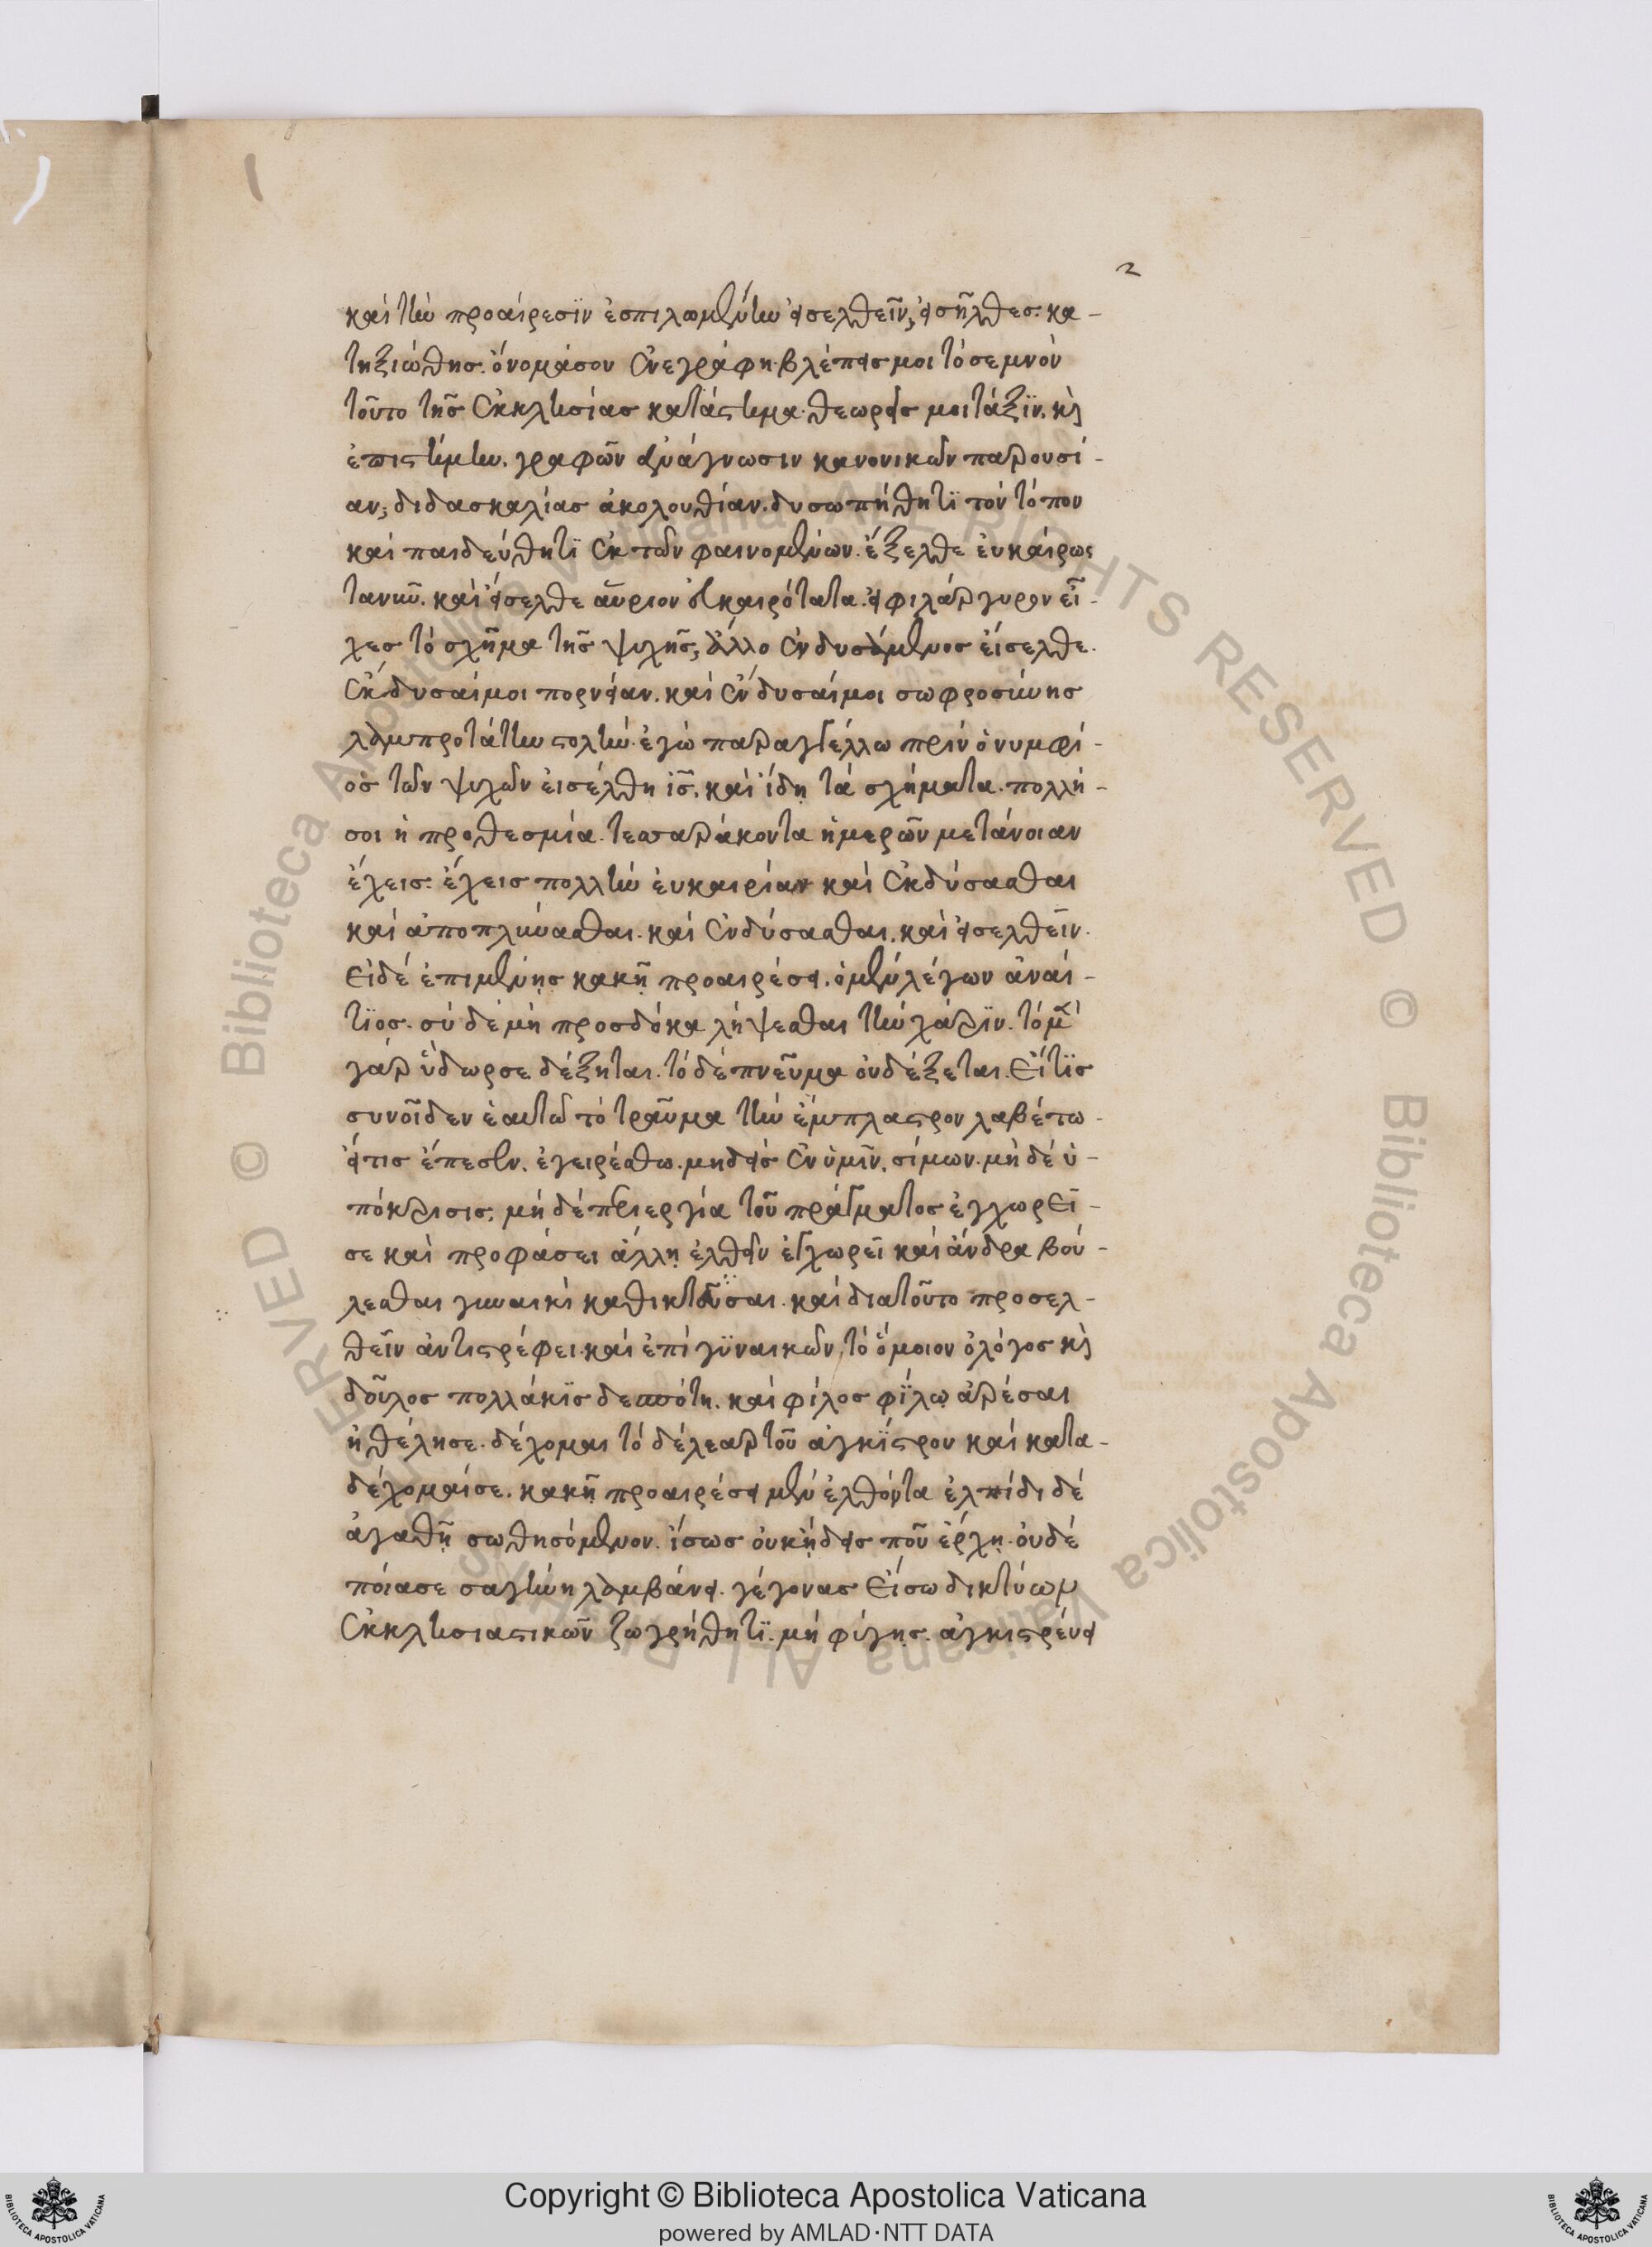 2
καὶ τὴν προαίρεσϊν ἐσπιλωμένην εἰσελθεῖν; εἰσῆλθες. κα-
τηξιώθης. ὀνομάσον ἐνεγράφη. βλέπεις μοι τὸ σεμνὸν
τοῦτο τῆς ἐκκλησίας κατάστημα. θεωρεῖς μοι τάξϊν. κὶ
ἐπιστήμην. γραφῶν ἀνάγνωσιν κανονικῶν παρουσί-
αν; διδασκαλίας ἀκολουθίαν. δυσωπήθητϊ τὸν τόπον
καὶ παιδεύθητϊ ἐκ τῶν φαινομένων. ἔξελθε ἐυκαίρως
τανῦν. καὶ εἴσελθε αὔριον εὐκαιρότατα. εἰ φιλάργυρον εἶ-
χες τὸ σχῆμα τῆς ψυχῆς; ἄλλο ἐνδυσάμενος εἴσελθε.
ἔκδυσαί μοι πορνείαν. καὶ ἔνδυσαί μοι σωφροσύνης
λαμπροτάτην στολήν. ἐγὼ παραγγέλλω πρὶν ὁ νυμφί-
ος τῶν ψυχῶν εἰσέλθη ἰς̄. καὶ ἴδη τὰ σχήματα. πολλή-
σοι ἡ προθεσμία. τεσσαράκοντα ἡμερῶν μετάνοιαν
ἔχεις. ἔχεις πολλὴν ἐυκαιρίαν καὶ ἐκδύσασθαι
καὶ ἀποπλύνασθαι. καὶ ἐνδύσασθαι. καὶ εἰσελθεῖν.
εἰ δὲ ἐπιμένης κακῇ προαιρέσει. ὁ μὲν λέγων ἀναί-
τϊος. σὺ δὲ μὴ προσδόκα λήψεσθαι τὴν χάρϊν. τὸ μὲν
γὰρ ὕδωρ σε δέξηται. τὸ δὲ πνεῦμα οὐ δέξεται. εἴ τϊς
συνοῖδεν ἑαυτῶ τὸ τραῦμα τὴν ἔμπλαστρον λαβέτω.
εἴ τις ἔπεσεν. ἐγειρέσθω. μηδεὶς ἐν ὑμῖν. σίμων. μὴ δὲ ὑ-
πόκρισις. μὴ δὲ περιεργία τοῦ πράγματος ἐγχωρεῖ-
σε καὶ προφάσει ἄλλῃ ἐλθεῖν ἐγχωρεῖ καὶ ἄνδρα βού-
λεσθαι γυναικὶ καθικτεῦσαι. καὶ διατοῦτο προσελ-
θεῖν ἀντιστρέφει. καὶ ἐπὶ γϋναικῶν, τὸ ὅμοιον ὁ λόγος κὶ
δοῦλος πολλάκϊς δεσπότη. καὶ φίλος φΐλῳ ἀρέσαι
ἠθέλησε. δέχομαι τὸ δέλεαρ τοῦ ἀγκΐστρου καὶ κατα-
δέχομαί σε. κακῇ προαιρέσει μὲν ἐλθόντα ἐλπίδι δὲ
ἀγαθῇ σωθησόμενον. ἴσως ὀυκ ᾔδεις ποῦ ἔρχῃ. οὐδὲ
πόια σε σαγήνη λαμβάνει. γέγονας εἴσω δικτύων
ἐκκλησιαστικῶν ζωγρήθητϊ. μὴ φύγης. ἀγκιστρεύει
Copyright © Biblioteca Apostolica Vaticana
powered by AMLAD·NTT DATA
© Biblioteca Apostolica Vaticana ALL RIGHTS RESERVED © Biblioteca Apostolica Vaticana ALL RIGHTS RESERVED
BIBLIOTECA APOSTOLICA VATICANA
BIBLIOTECA APOSTOLICA VATICANA